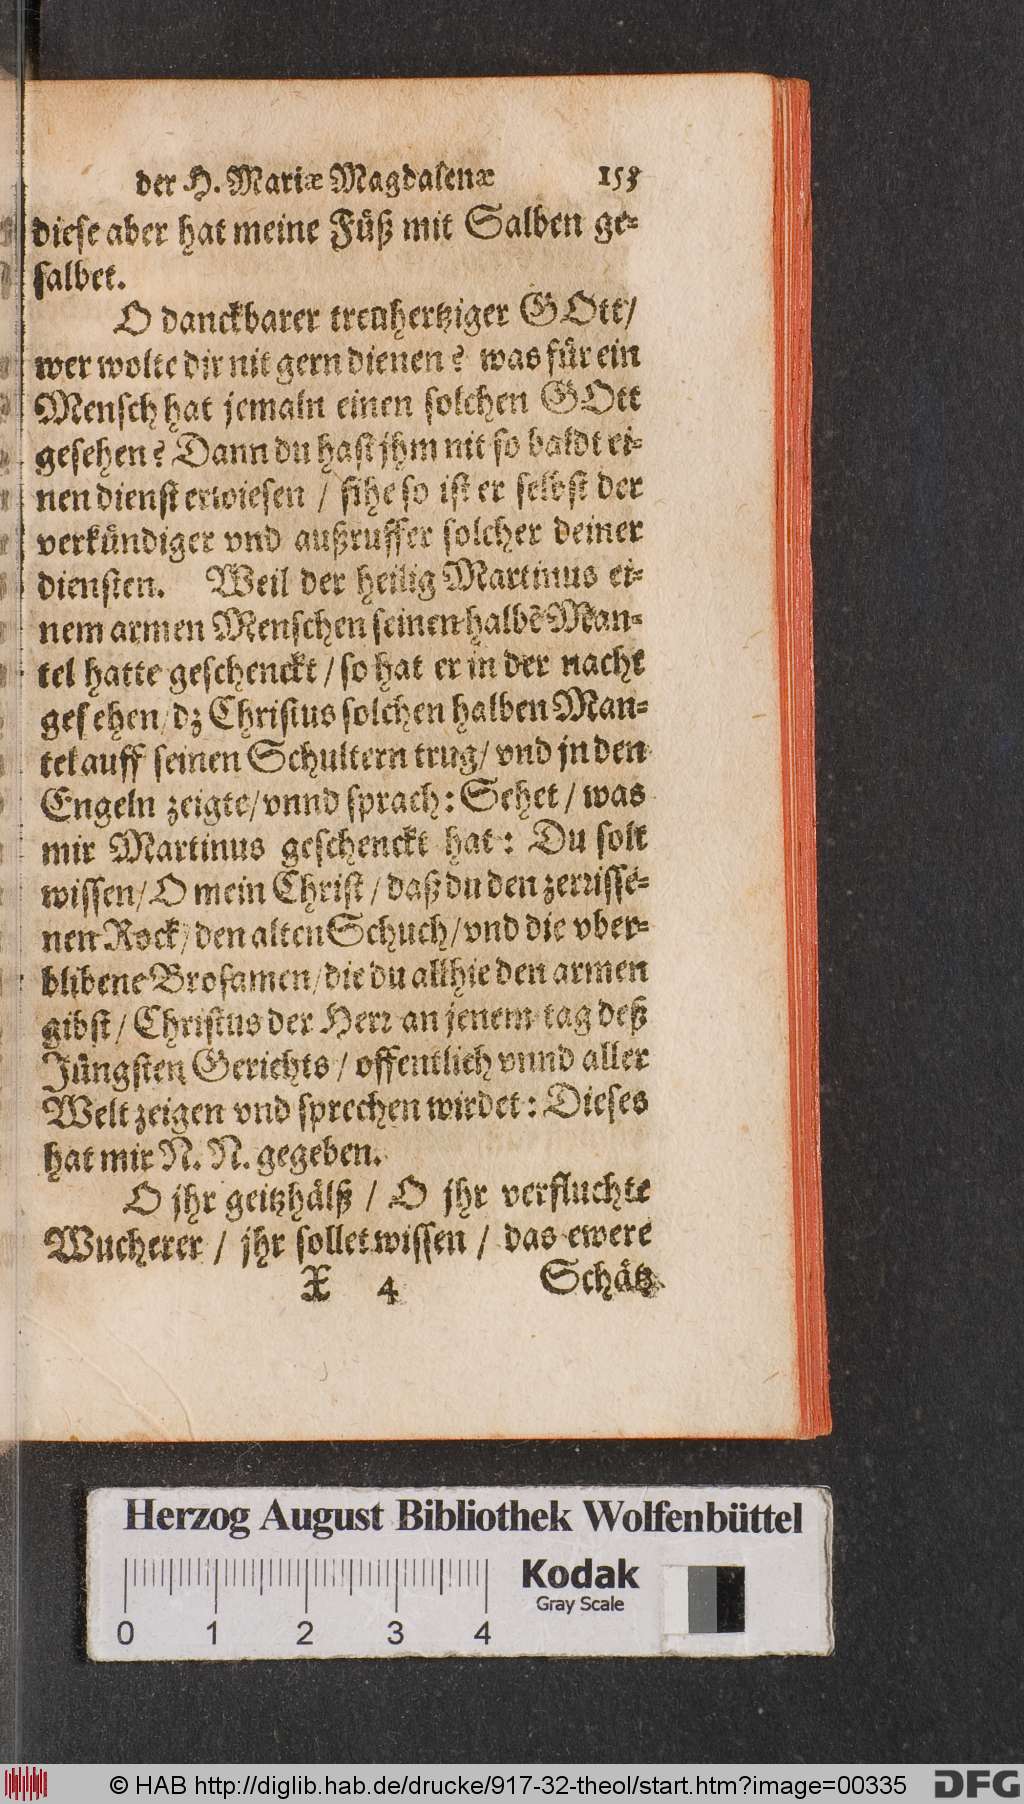 der H. Mariæ Magdalenæ 153
diese aber hat meine Füß mit Salben ge-
salbet.
O danckbarer treuhertziger GOtt/
wer wolte dir nit gern dienen? was für ein
Mensch hat jemaln einen solchen GOtt
gesehen? Dann du hast jhm nit so baldt ei-
nen dienst erwiesen / sihe so ist er selbst der
verkündiger vnd außruffer solcher deiner
diensten. Weil der heilig Martinus ei-
nem armen Menschen seinen halbẽ Man-
tel hatte geschenckt / so hat er in der nacht
gesehen/ dz Christus solchen halben Man-
tel auff seinen Schultern trug/ vnd jn den
Engeln zeigte/ vnnd sprach: Sehet / was
mir Martinus geschenckt hat: Du solt
wissen/ O mein Christ / daß du den zerrisse-
nen Rock/ den alten Schuch/ vnd die vber-
blibene Brosamen/ die du allhie den armen
gibst / Christus der Herr an jenem tag deß
Jüngsten Gerichts / offentlich vnnd aller
Welt zeigen vnd sprechen wirdet: Dieses
hat mir N. N. gegeben.
O jhr geitzhälß / O jhr verfluchte
Wucherer / jhr sollet wissen / das ewere
X 4 Schätz
Herzog August Bibliothek Wolfenbüttel
Kodak
Gray Scale
0 1 2 3 4
© HAB http://diglib.hab.de/drucke/917-32-theol/start.htm?image=00335
DFG